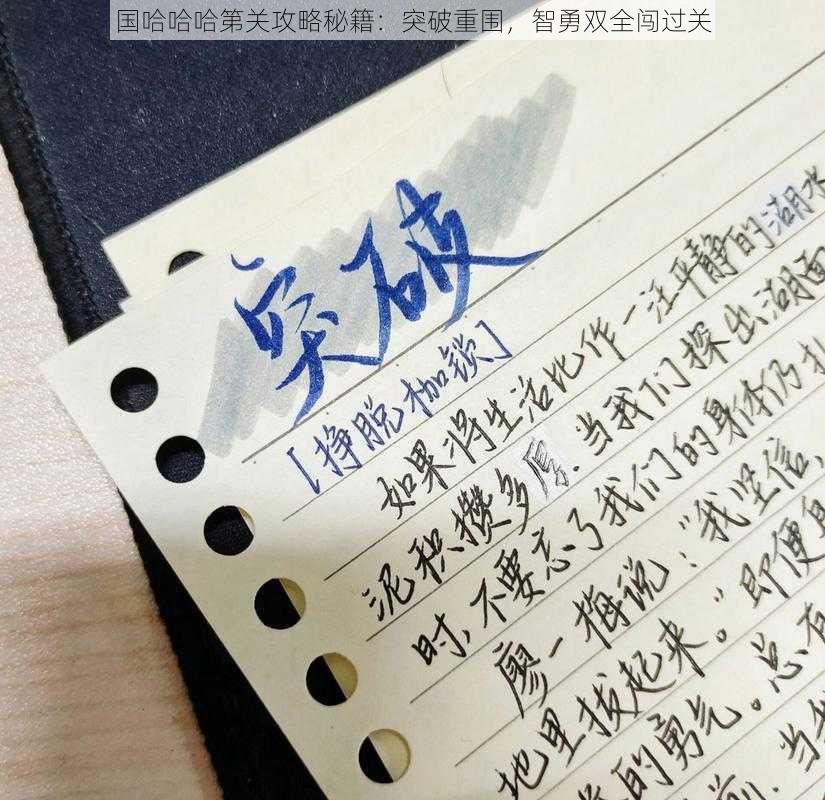 国哈哈哈第关攻略秘籍：突破重围，智勇双全闯过关
突破
[挣脱枷锁]
如果将生活比作一汪平静的湖水
泥积攒多厚.当我们探出湖面
时,不要忘了我们的身体仍扎
廖一梅说："我坚信,
地里拔起来。"即便身
的勇气。总有
前.当我